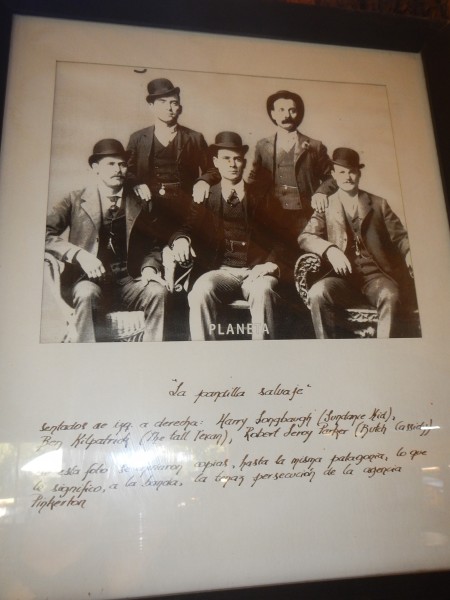 PLANETA
"La pandilla salvaje"
sentados de izq. a derecha: Harry Longbaugh (Sundance Kid),
Ben Kilpatrick (The tall Texan), Robert Leroy Parker (Butch Cassidy)
esta foto se enviaron copias, hasta la misma patagonia, lo que
significo, a la banda, la tenaz persecución de la agencia
Pinkerton